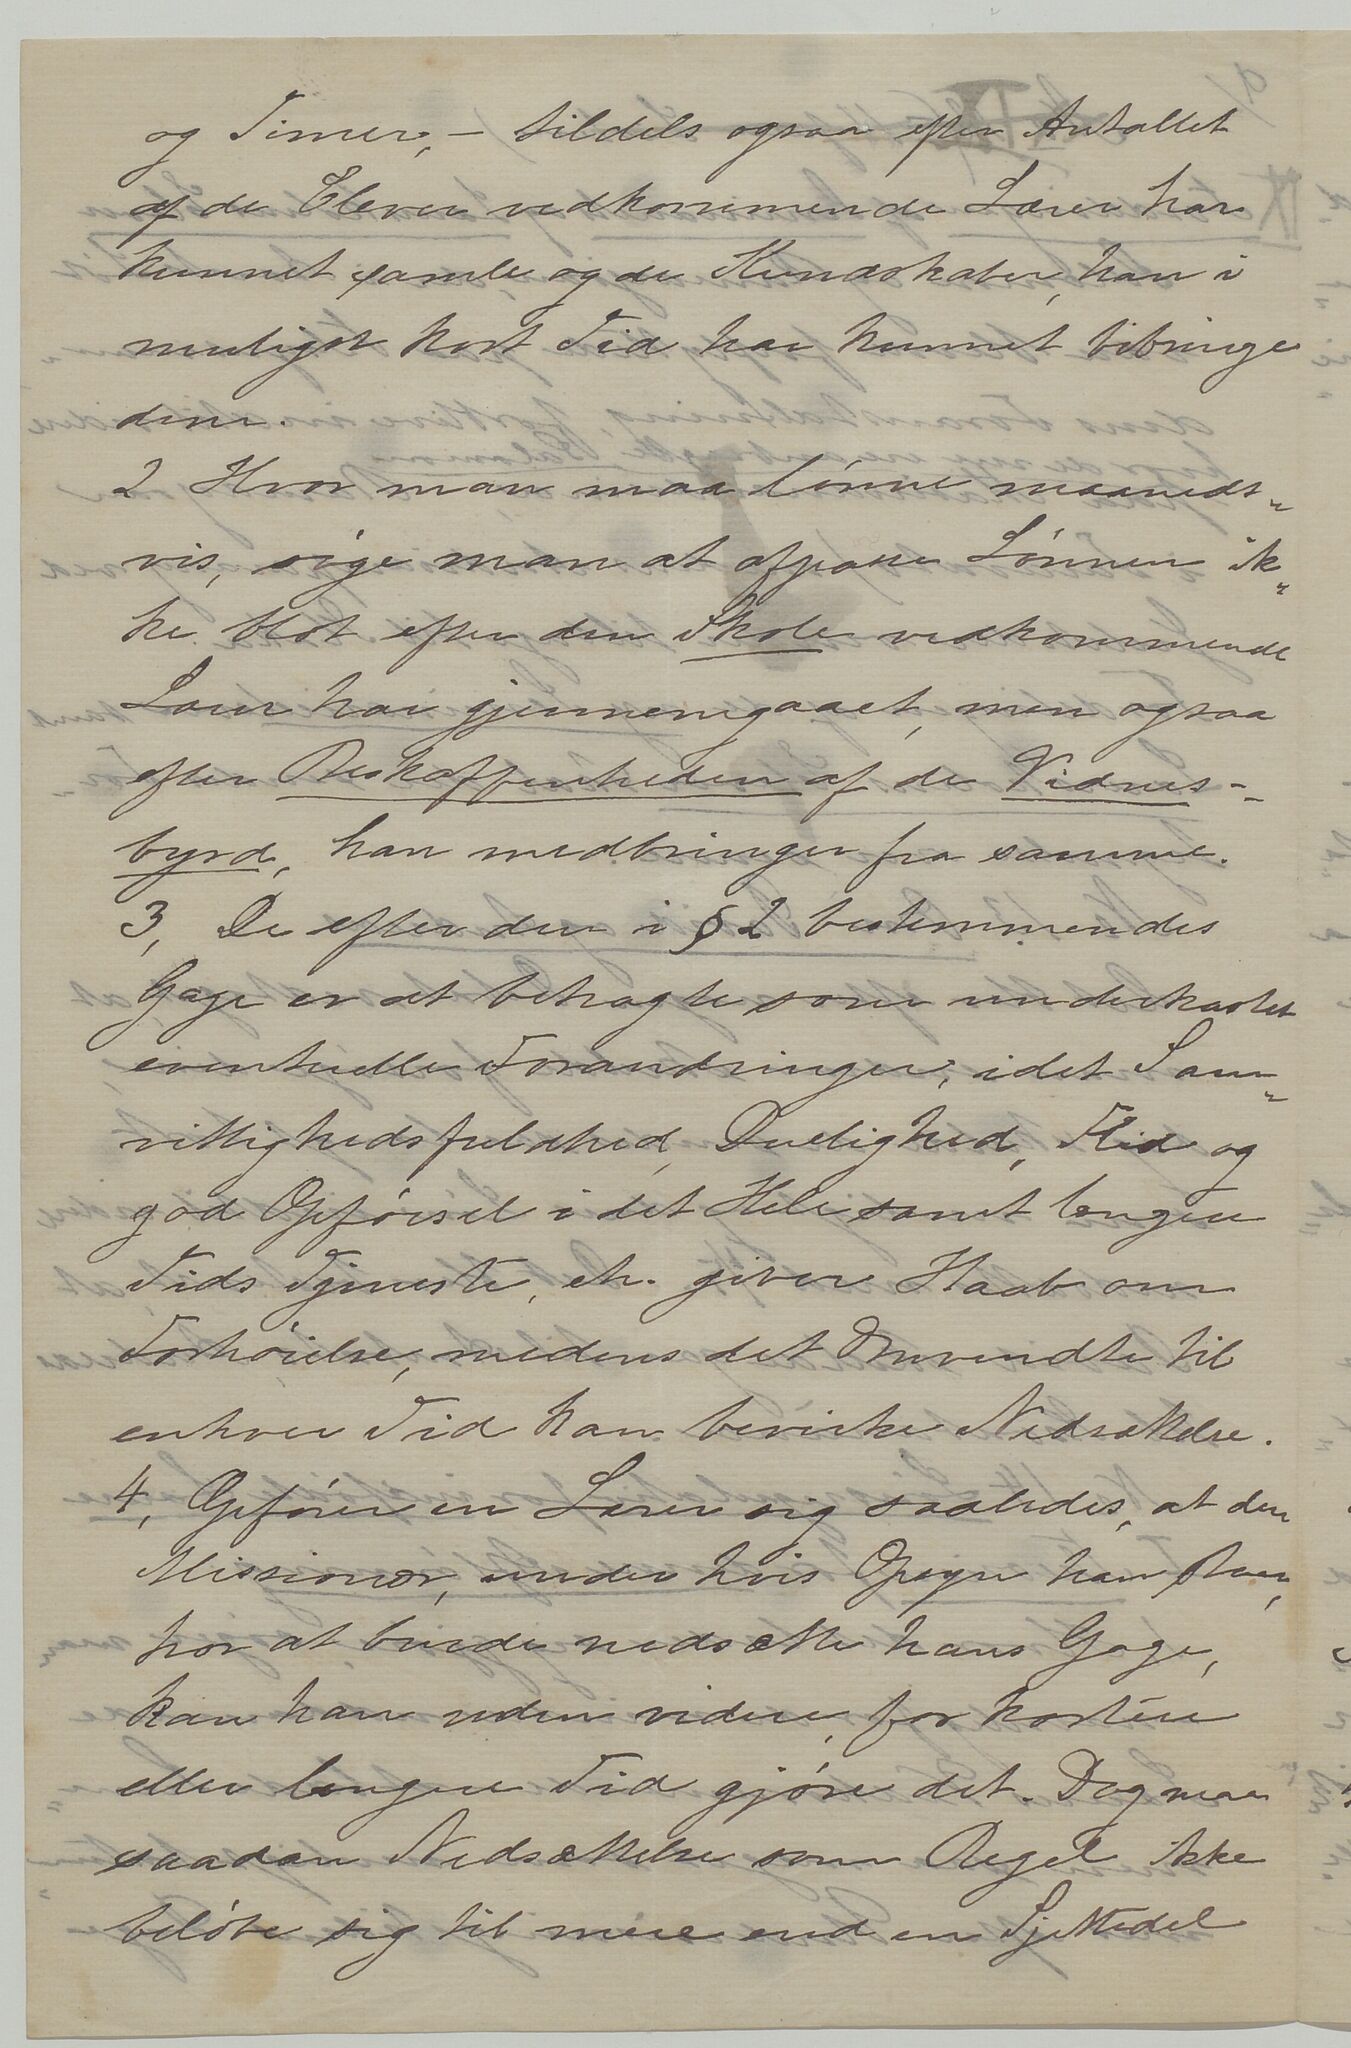 og Timer, – tildels ogsaa efter Antallet
af de Elever vedkommende Lærer har
kunnet samle og de Kundskaber, han i
muligst kort Tid har kunnet bibringe
dem.
2 Hvor man maa lønne maaneds-
vis, søge man at afpasse Lønnen ik-
ke blot efter den Skole vedkommende
Lærer har gjennemgaaet, men ogsaa
efter Beskaffenheden af de Vidnes-
byrd, han medbringer fra samme.
3, De efter den i § 2 bestemmendes
Gage er at betragte som underkastet
eventuelle Forandringer, idet Sam-
vittighedsfuldhed, Duelighed, Flid og
god Opførsel i det Hele samt længere
Tids Tjeneste, etc. giver Haab om
Forhøielse, medens det Omvendte til
enhver Tid kan bevirke Nedsættelse.
4, Opfører en Lærer sig saaledes, at den
Missionær, under hvis Opsyn han staar,
tror at burde nedsætte hans Gage,
kan han uden videre, for kortere
eller længere Tid gjøre det. Dog maa
saadan Nedsættelse som Regel ikke
beløbe sig til mere end en Sjettedel